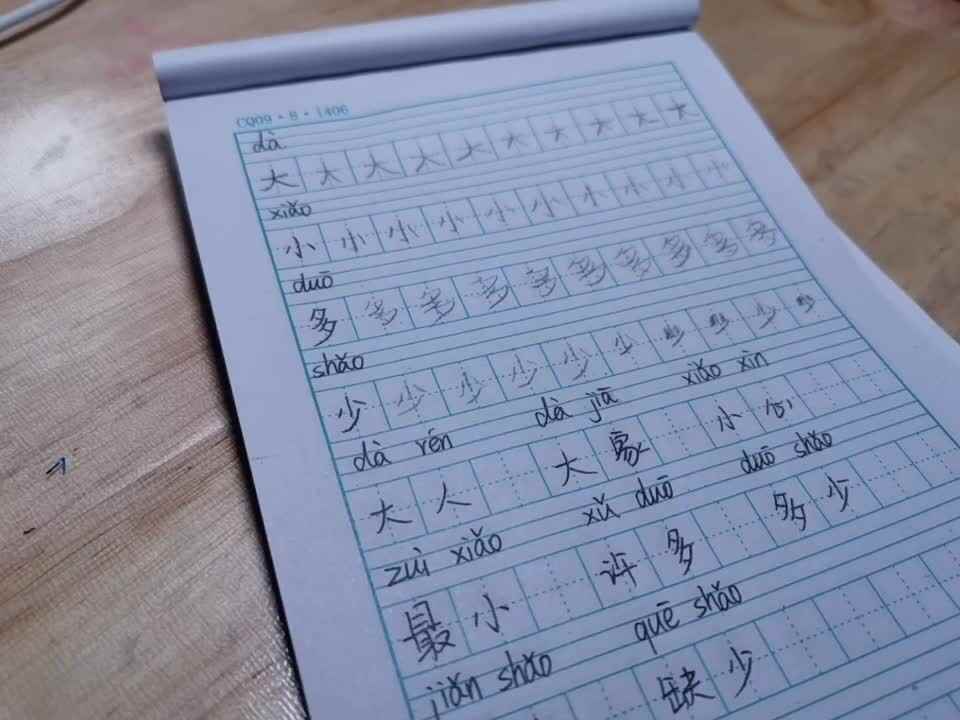 CQ09·8·1406
dà
大 大 大 大 大 大 大 大 大 大
xiǎo
小 小 小 小 小 小 小 小 小 小
duō
多 多 多 多 多 多 多 多 多 多
shǎo
少 少 少 少 少 少 少 少 少 少
dà rén dà jiā xiǎo xīn
大人 大家 小心
zuì xiǎo xǔ duō duō shǎo
最小 许多 多少
jiǎn shǎo quē shǎo
缺少